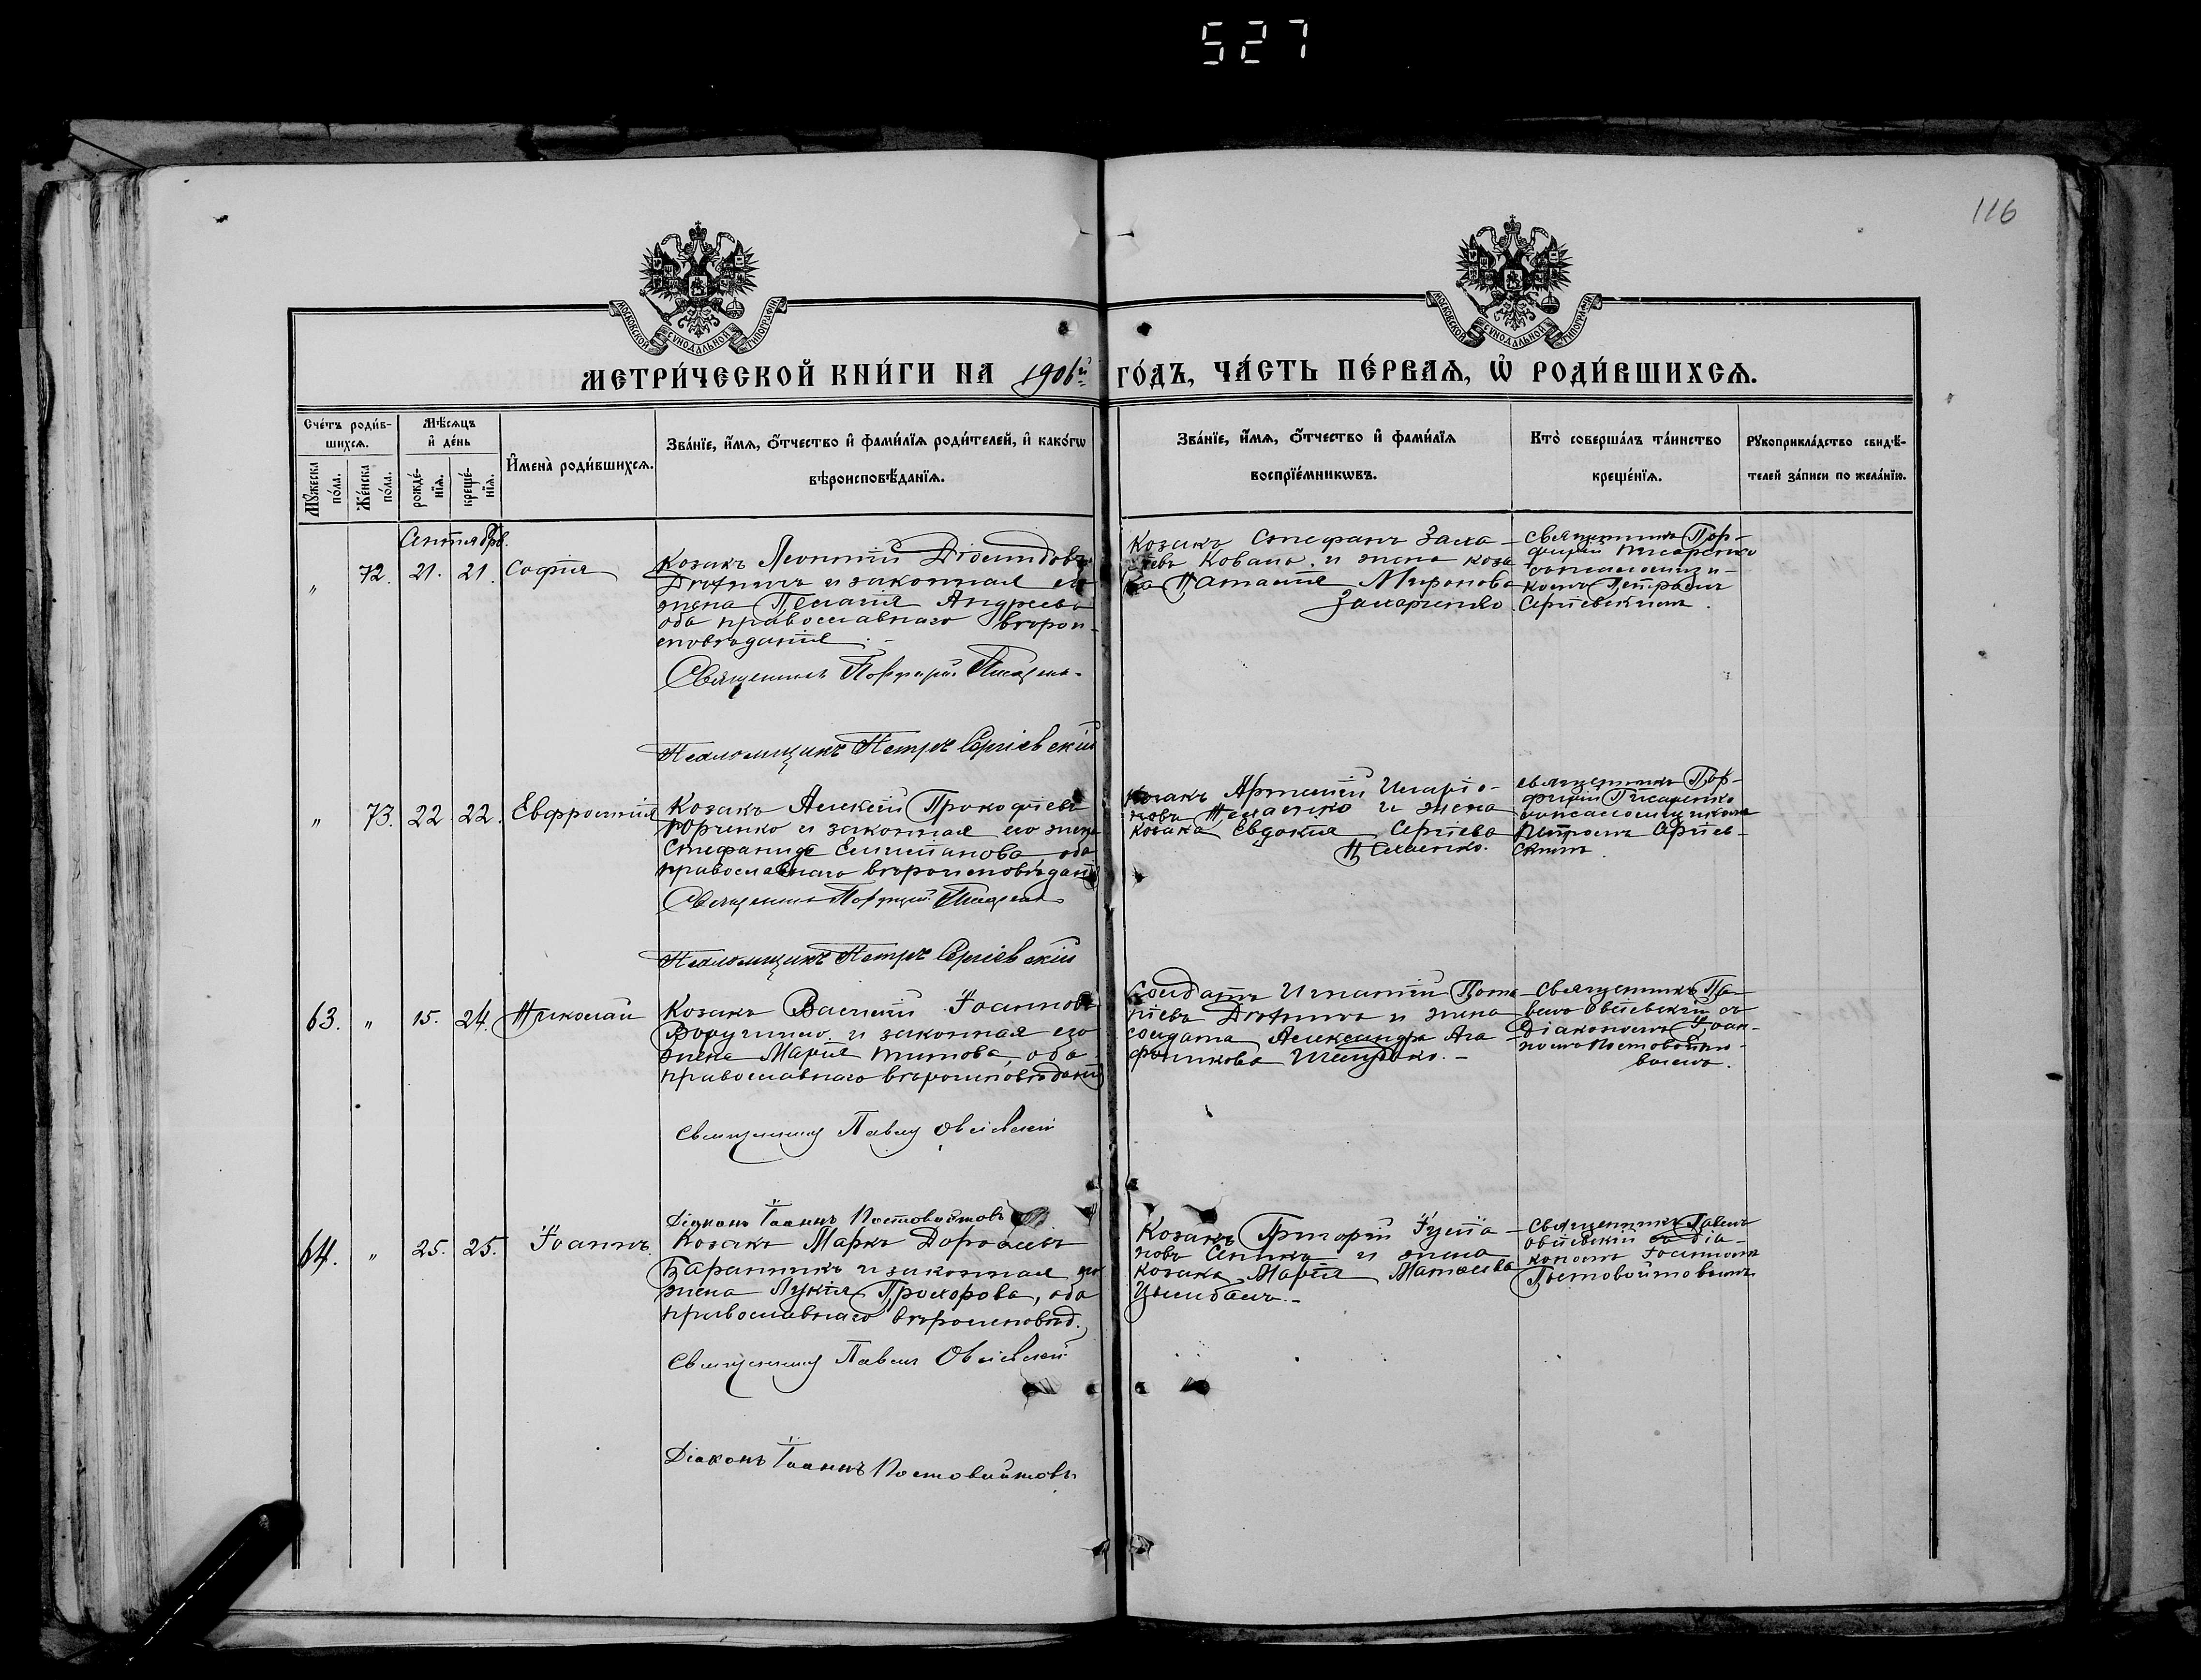 527
116
МОСКОВСКОЙ СѴНОДАЛЬНОЙ ТИПОГРАФІИ
МОСКОВСКОЙ СѴНОДАЛЬНОЙ ТИПОГРАФІИ
МЕТРИ́ЧЕСКОЙ КНИ́ГИ НА 1906й ГО́ДЪ, ЧА́СТЬ ПЕ́РВАѦ, Ѽ РОДИ́ВШИХСѦ.
Сче́тъ роди́в-
шихсѧ.
Мꙋ́жеска по́ла.
Же́нска по́ла.
Мѣ́сѧцъ и҆ де́нь
рожде́-нїѧ.
креще́-нїѧ.
И҆мена̀ роди́вшихсѧ.
Зва́нїе, и҆́мѧ, ѻ҆́тчество и҆ фами́лїѧ роди́телей, и҆ како́гѡ
вѣроисповѣ́данїѧ.
Зва́нїе, и҆́мѧ, ѻ҆́тчество и҆ фами́лїѧ
воспрїе́мникѡвъ.
Кто̀ соверша́лъ та́инство
креще́нїѧ.
Рꙋкоприкла́дство свидѣ́-
телей за́писи по жела́нїю.
Сентябрь.
„ 72. 21. 21. Софія
Козакъ Леонтій Діомидовъ
и законная его
жена Пелагія Андреева
оба православнаго вѣроис-
повѣданія.
Священникъ Порфирій Писаренко
Псаломщикъ Петръ Сергіевскій
Козакъ Стефанъ Заха-
ріевъ Коваль и жена коза
ка Наталія Миронова
Захарченко.
Священникъ Пор-
фирій Писаренко
съ псаломщи-
комъ Петромъ
Сергіевскимъ.
„ 73. 22. 22. Евфросинія
Козакъ Алексій Прокофіевъ
и законная его жена
Стефанида оба
православнаго вѣроисповѣданія
Священникъ Порфирій Писаренко
Псаломщикъ Петръ Сергіевскій
Козакъ Артемій Иларіо-
новъ и жена
козака Евдокія Сергіева
Священникъ Пор-
фирій Писаренко
съ псаломщикомъ
Петромъ Сергіев-
скимъ.
63. „ 15. 24. Николай
Козакъ Василій Іоанновъ
и законная его
жена Марія Титова, оба
православнаго вѣроисповѣданія
Священникъ Павелъ Овсіевскій
Діаконъ Іоаннъ Постовойтовъ
Солдатъ Игнатій Пота-
піевъ и жена
солдата Александра Ага-
фоникова
Священникъ Па-
велъ Овсіевскій съ
Діакономъ Іоан-
номъ Постовойто-
вымъ.
64. „ 25. 25. Іоаннъ.
Козакъ Маркъ Дорофеевъ
Баранникъ и законная его
жена Лукія Прохорова, оба
православнаго вѣроисповѣд.
Священникъ Павелъ Овсіевскій
Діаконъ Іоаннъ Постовойтовъ
Козакъ Григорій Іуліа-
новъ и жена
козака Марія Матѳеева
Цымбалъ.
Священникъ Павелъ
Овсіевскій съ діа-
кономъ Іоанномъ
Постовойтовымъ